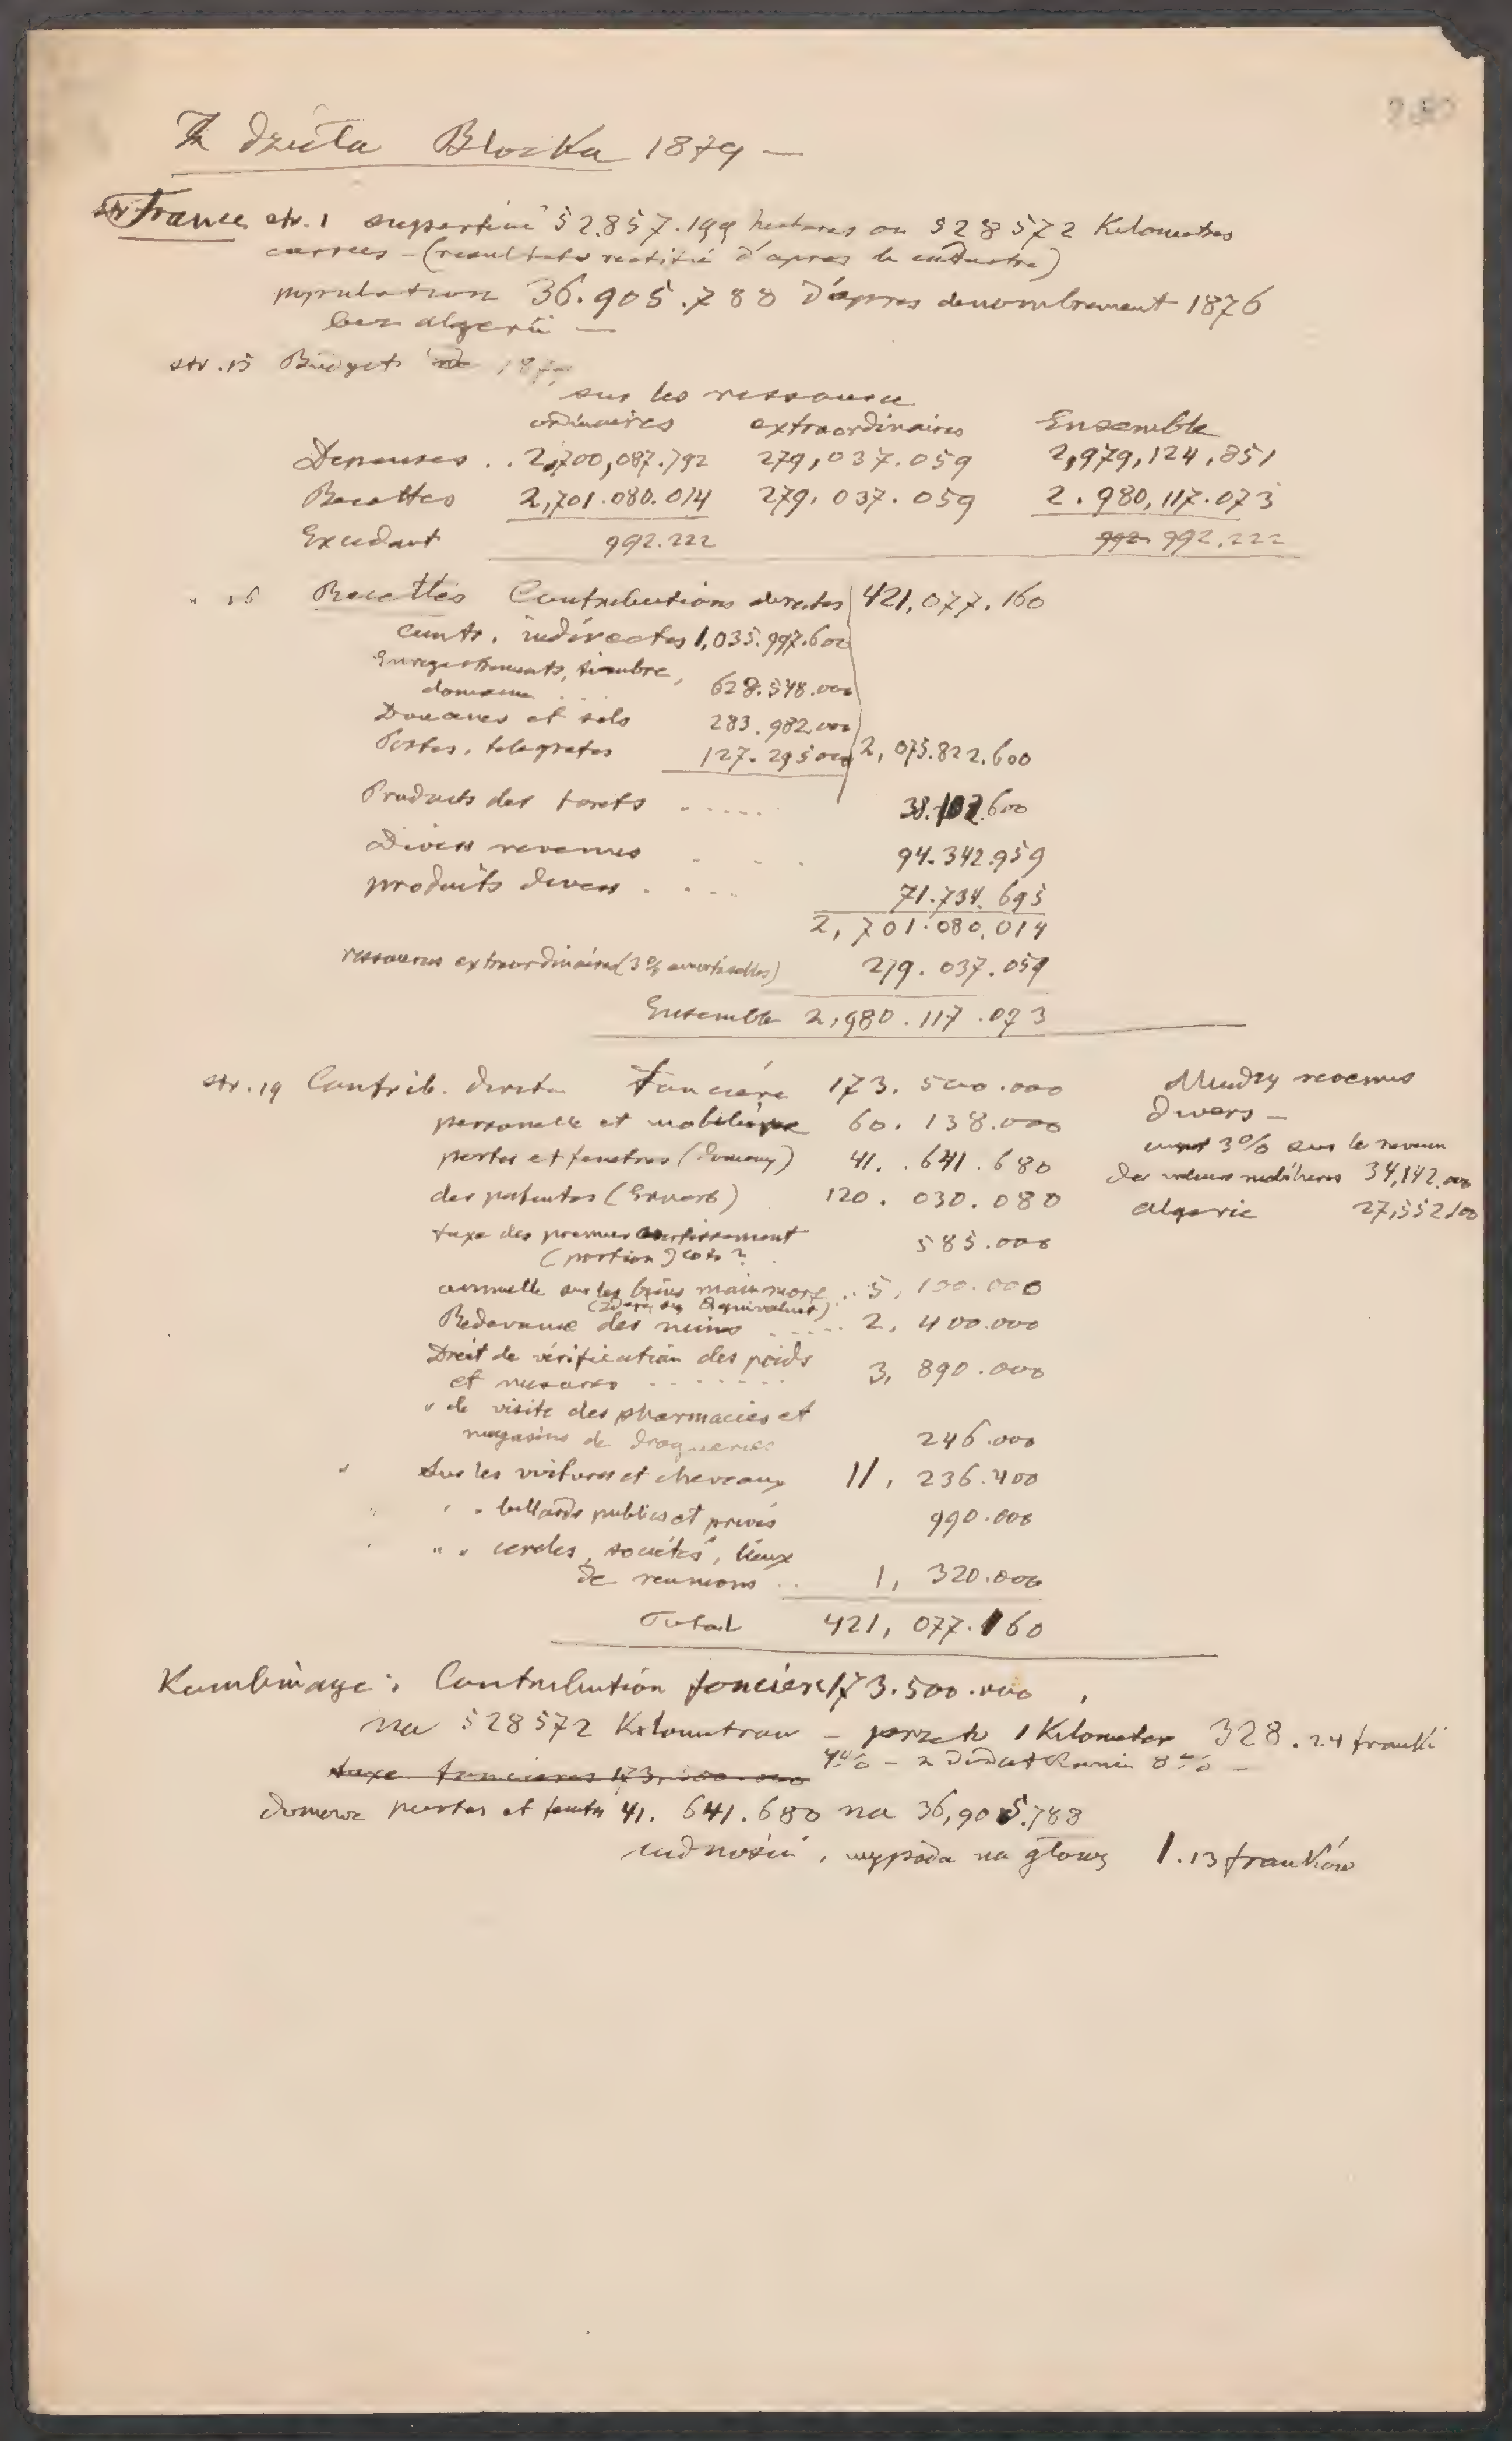 Z dzieła Blocka 1879 —
France str. 1 superficie 52.857.199 hectares ou 528572 Kilometres
carrees – (resultats rectifié d'apres le cadastre)
population 36.905.788 D'apres denombrement 1876
bez algerii —
str. 15 Budget 1879
sur les ressource
ordinaires extraordinaires Ensemble
Depenses .. 2,700,087.792 279,037.059 2,979,124,851
Recettes 2,701.080.014 279.037.059 2.980,117.073
Excedant 992.222 992 992.222
" 16 Recettes Contributions directes 421,077.160
contr. indirectes 1,035.997.600
Enregistrements, timbre,
domaine . . . 628.548.000
Douanes et sels 283.982.000
Postes, telegrafes 127.295 000 2,075.822.600
Produits des forets ..... 38.102.600
Divers revenus . . . 94.342.959
produits divers . ... 71.734.695
2,701.080,014
ressources extraordinaires (3% amortisables) 279.037.059
Ensemble 2,980.117.073
str. 19 Contrib. directe fonciére 173.500.000 Między revenus
divers —
personelle et mobilière 60.138.000
impot 3% sur le revenu
portes et fenetres (domowy) 41..641.680
des valeurs mobilieres 34,142.000
des patentes (Erwerb) 120.030.080
algerie 27,552100
taxe des premier avertissement 585.000
(portion) cote ?
annuelle sur les biens mainmorte .. 5,100.000
Redevance des mines ..... 2,400.000
Droit de vérification des poids
et mesures ....... 3,890.000
" de visite des pharmacies et
magasins de drogueries 246.000
Sur les voitures et chevaux 11,236.400
" " billards publics et privés 990.000
" " cercles, sociétés, lieux
de reunions .. 1,320.000
Total 421,077.160
Kombinacye: Contribution foncière 173.500.000,
na 528572 Kilometrow – przeto 1 Kilometer 328.24 franki
taxe foncieres 173.500.000
domowe portes et fenetr 41.641.680 na 36,905.788
ludności, wypada na głowę 1.13 franków